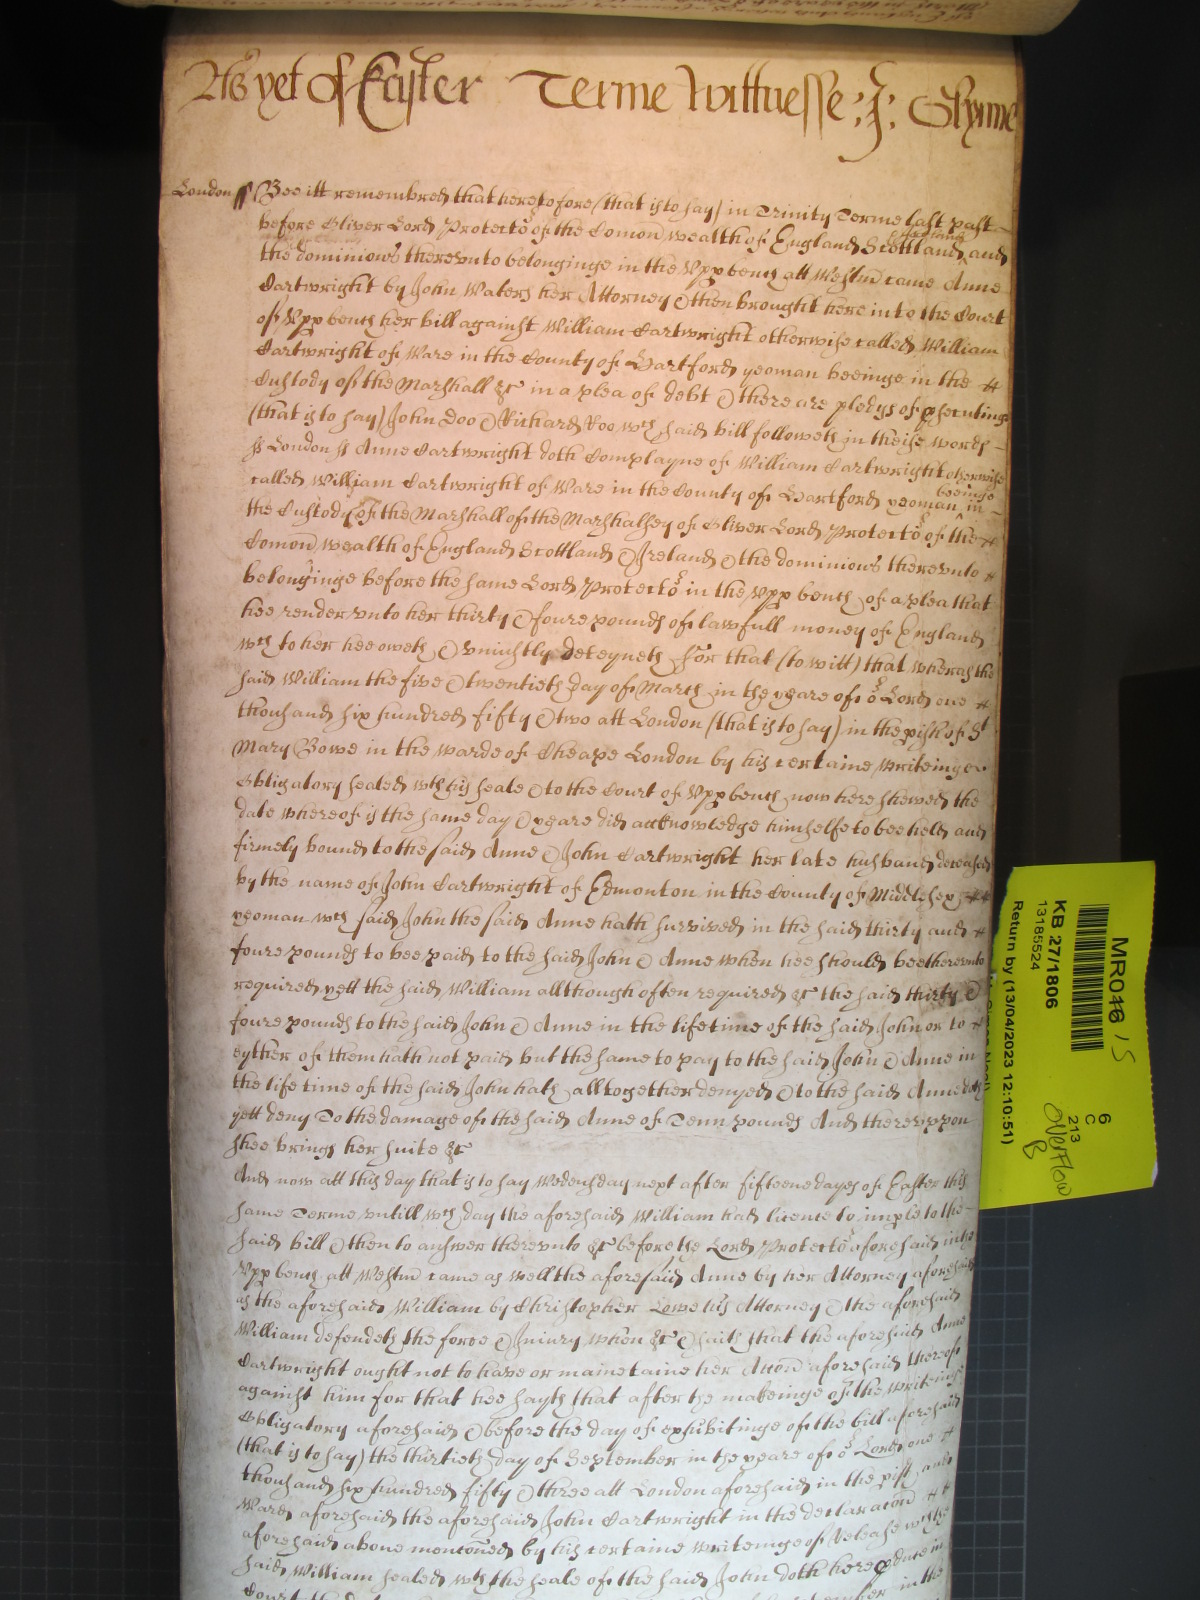 As yet of Easter Terme Wittnesse: J: Glynne
London ss Bee itt remembred that heretofore (that is to say) in Trinity Terme last past
before Oliver Lord Protector of the Comon wealth of England Scottland Ireland and
the dominions therevnto belonginge in the Vpp bench att Westm came Anne
Cartwright by John Waters her Attorney & then brought here into the Court
of Vpp bench her bill against William Cartwright otherwise called William
Cartwright of Ware in the County of Hartford yeoman beeinge in the
Custody of the Marshall &c in a plea of debt & there are pledgs of psecuting
(that is to say) John Doo & Richard Roo wch said bill followeth in theise words
ss London ss Anne Cartwright doth Complayne of William Cartwright otherwise
called William Cartwright of Ware in the County of Hartford yeoman beeinge in
the Custody of the Marshall of the Marshalsey of Oliver Lord Protector of the
Comon wealth of England Scottland & Ireland & the dominions therevnto
belonginge before the same Lord Protector in the Vpp bench of a plea that
hee render vnto her thirty & foure pounds of lawfull money of England
wch to her hee oweth & vniustly deteyneth For that (to witt) that wheras the
said William the five & twentieth day of March in the yeare of or Lord one
thousand six hundred fifty & two att London (that is to say) in the pish of St
Mary Bowe in the warde of Cheape London by his certaine writeinge
Obligatory sealed wth his seale & to the Court of Vpp bench now here shewed the
date whereof is the same day & yeare did acknowledge himselfe to bee held and
firmely bound to the said Anne & John Cartwright her late husband deceased
by the name of John Cartwright of Edmonton in the County of Middlesex
yeoman wch said John the said Anne hath survived in the said thirty and
foure pounds to bee paid to the said John & Anne when hee should bee therevnto
required yett the said William allthough often required &c the said thirty &
foure pounds to the said John & Anne in the life time of the said John or to
eyther of them hath not paid but the same to pay to the said John & Anne in
the life time of the said John hath alltogether denyed & to the said Anne doth
yett deny To the damage of the said Anne of Tenn pounds And therevppon
shee brings her suite &c
And now att this day that is to say Wednesday next after fifteene dayes of Easter this
same Terme vntill wch day the aforesaid William had licence to imple to the
said bill & then to answer therevnto &c before the Lord Protector aforesaid in the
Vpp bench att Westm came as well the aforesaid Anne by her Attorney aforesaid
as the aforesaid William by Christopher Lowe his Attorney & the aforesaid
William defendeth the force & Iniury when &c & saith that the aforesaid Anne
Cartwright ought not to have or mainetaine her Accon aforesaid thereof
against him for that hee sayth that after the makeinge of the writeinge
Obligatory aforesaid & before the day of exhibitinge of the bill aforesaid
(that is to say) the thirtieth day of September in the yeare of or Lord one
thousand six hundred fifty & three att London aforesaid in the pish and
Ward aforesaid the aforesaid John Cartwright in the declaracon
aforesaid above menconed by his certaine writeinge of Release wch the
said William sealed wth the seale of the said John doth here pduce in
MR046 15
KB 27/1806
13185524
Return by (13/04/2023 12:10:51)
6
C
213
Overflow
B